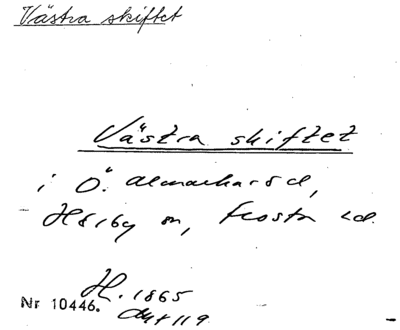 Västra skiftet
Västra skiftet
i Ö. Almarkarsd,
Hörby sn, Frosta hd.
H. 1865
Nr 10446. Akt 119